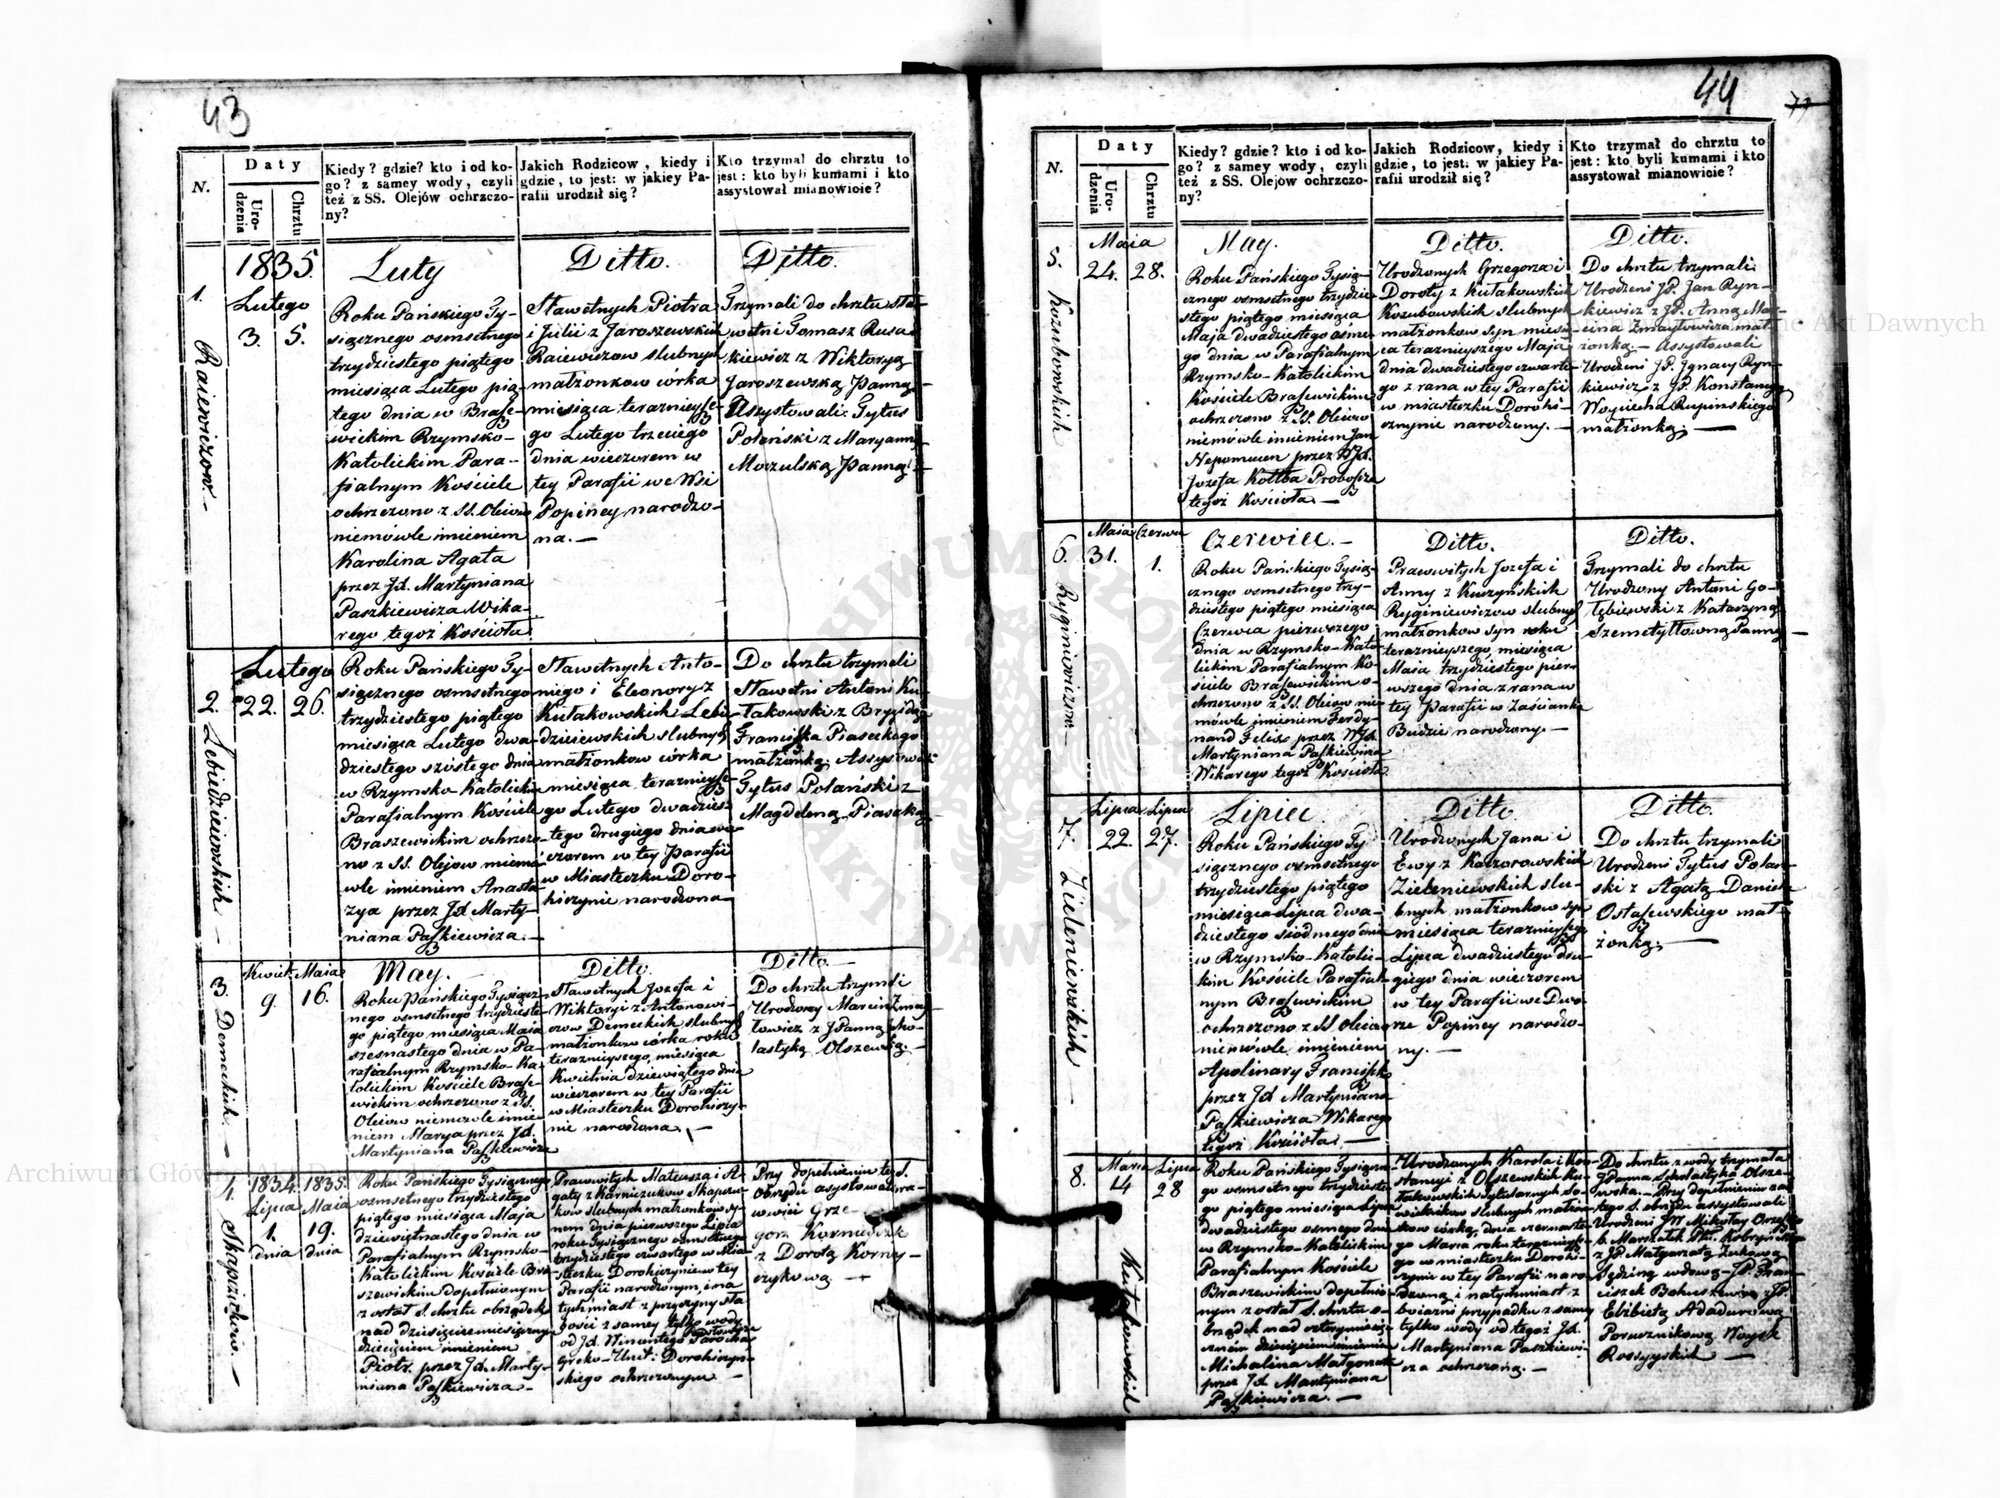 43
N.
Daty
Urodzenia
Chrztu
Kiedy? gdzie? kto i od ko-
go? z samey wody, czyli
też z SS. Olejów ochrzczo-
ny?
Jakich Rodzicow, kiedy i
gdzie, to jest: w jakiey Pa-
rafii urodził się?
Kto trzymał do chrztu to
jest: kto byli kumami i kto
assystował mianowicie?
1835.
Luty
Ditto.
Ditto.
1.
Raiewiczow.
Lutego
3. 5.
Roku Pańskiego Ty-
siącznego osmsetnego
trzydziestego piątego
miesiąca Lutego pią-
tego dnia w Brasze-
wickim Rzymsko-
Katolickim Para-
fialnym Kościele
ochrzczono z SS. Oleiow
niemówle imieniem
Karolina Agata
przez Jd. Martyniana
Paszkiewicza Wika-
rego tegoż Kościoła
Sławetnych Piotra
i Julii z Jaroszewskich
Raiewiczow slubnych
małżonkow córka
miesiąca teraznieysze-
go Lutego trzeciego
dnia wieczorem w
tey Parafii we Wsi
Popiney narodzo-
na.—
Trzymali do chrztu sła-
wetni Tomasz Rusa-
kiewicz z Wiktoryą
Jaroszewską Panną
Aszystowali: Tytus
Polański z Maryanną
Moczulską Panną
2.
Lebiedziewskich
Lutego
22. 26.
Roku Pańskiego Ty-
siącznego osmsetnego
trzydziestego piątego
miesiąca Lutego dwa-
dziestego szóstego dnia
w Rzymsko Katolickim
Parafialnym Kościele
Braszewickim ochrzczo-
no z SS. Olejow niemó-
wle imieniem Anasta-
zya przez Jd Marty-
niana Paszkiewicza.—
Sławetnych Anto-
niego i Eleonory z
Kułakowskich Lebie-
dziewskich slubnych
małżonkow córka
miesiąca teraznieysze-
go Lutego dwadzies-
tego drugiego dnia wie-
czorem w tey Parafii
w Miasteczku Doro-
hiczynie narodzona
Do chrztu trzymali
Sławetni Antoni Ku-
łakowski z Brygidą
Franciszka Piaseckiego
małżonką Assystowali
Tytus Polański z
Magdeleną Piasecką
3.
Demeckich.
Kwiet. Maia
9. 16.
May.
Ditto.
Ditto.
Roku Pańskiego Tysiącz-
nego osmsetnego trzydzieste-
go piątego miesiąca Maia
szesnastego dnia w Pa-
rafialnym Rzymsko-Ka-
tolickim Kościele Brasze-
wickim ochrzczono z SS.
Oleiow niemowle imie-
niem Marya przez Jd.
Martyniana Paszkiewicza
Sławetnych Jozefa i
Wiktoryi z Antonowi-
czow Demeckich slubnych
małżonkow córka roku
teraznieyszego, miesiąca
Kwietnia dziewiątego dnia
wieczorem w tey Parafii
w Miasteczku Dorohiczy-
nie narodzona.—
Do chrztu trzymali
Urodzony Marcin Zmay-
łowicz z JPanną Scho-
lastyką Olszewską.—
4.
1834. 1835.
Lipca Maia
1. 19.
dnia dnia
Roku Pańskiego Tysiącznego
osmsetnego trzydziestego
piątego miesiąca Maja
dziewiętnastego dnia w
Parafialnym Rzymsko-
Katolickim Kościele Bra-
szewickim dopełnionym
został S. chrztu obrządek
nad dziesięciomiesięcznym
dziecięciem imieniem
Piotr, przez Jd. Marty-
niana Paszkiewicza—
Prawowitych Mateusza i A-
gaty z Karniczukow
kow slubnych małżonkow sy-
nem dnia pierwszego Lipca
roku Tysiącznego osmsetnego
trzydziestego czwartego w Mia-
steczku Dorohiczynie w tey
Parafii narodzonym, i na-
tychmiast z przyczyny sła-
bości z samey tylko wody
od Jd. Winsentego
Greko-Unit: Dorohiczyn-
skiego ochrzczonym—
Przy dopełnieniu tego S.
Obrządu asystowali
Grze-
gorz Korniyczuk
z Dorotą Korniy-
czykową—
44
N.
Daty
Urodzenia
Chrztu
Kiedy? gdzie? kto i od ko-
go? z samey wody, czyli
też z SS. Olejów ochrzczo-
ny?
Jakich Rodzicow, kiedy i
gdzie, to jest: w jakiey Pa-
rafii urodził się?
Kto trzymał do chrztu to
jest: kto byli kumami i kto
assystował mianowicie?
5.
Kozubowskich
Maia
24. 28.
May.
Ditto.
Ditto.
Roku Pańskiego Tysią-
cznego osmsetnego trzydzie-
stego piątego miesiąca
Maja dwadziestego osme-
go dnia w Parafialnym
Rzymsko-Katolickim
Kościele Braszewickim
ochrzczono z SS. Oleiow
niemówle imieniem Jan
Nepomucen przez WJd.
Jozefa Kottba Proboszcza
tegoż Kościoła—
Urodzonych Grzegorza i
Doroty z Kułakowskich
Kozubowskich slubnych
małżonkow Syn miesią-
ca teraznieyszego Maja
dnia dwadziestego czwarte-
go z rana w tey Parafii
w miasteczku Dorohi-
czynie narodzony.—
Do chrztu trzymali
Urodzeni JP. Jan Ryn-
kiewicz z JP. Anną Mar-
cina Zmayłowicza mał-
żonką.— Assystowali
Urodzeni JP. Ignacy Ryn-
kiewicz z JP. Konstancyą
Woyciecha Rupinskiego
małżonką.—
6.
Ryginiewiczow.—
Maia Czerwca
31. 1.
Czerwiec.—
Ditto.
Ditto.
Roku Pańskiego Tysią-
cznego osmsetnego trzy-
dziestego piątego miesiąca
Czerwca pierwszego
dnia w Rzymsko-Kato-
lickim Parafialnym Ko-
ściele Braszewickim o-
chrzczono z SS. Oleiow nie-
mówle imieniem Ferdy-
nand Felix przez WJd.
Martyniana Paszkiewicza
Wikarego tegoż Kościoła
Prawowitych Jozefa i
Anny z Kuczyńskich
Ryginiewiczow slubnych
małżonkow syn roku
teraznieyszego, miesiąca
Maia trzydziestego pier-
wszego dnia z rana w
tey Parafii w Zaścianku
Beidzie narodzony.—
Trzymali do chrztu
Urodzony Antoni Go-
łębiewski z Katarzyną
Szemetyłłowną Panną—
7.
Zieleniewskich—
Lipca Lipca
22. 27.
Lipiec.
Ditto.
Ditto.
Roku Pańskiego Ty-
siącznego osmsetnego
trzydziestego piątego
miesiąca Lipca dwa-
dziestego siódmego dnia
w Rzymsko-Katolic-
kim Kościele Parafial-
nym Braszewickim
ochrzczono z SS Oleiow
niemówle imieniem
Apolinary Franciszek
przez Jd Martyniana
Paszkiewicza Wikarego
tegoż Kościoła.—
Urodzonych Jana i
Ewy z Kaczorowskich
Zieleniewskich slu-
bnych małżonkow syn
miesiąca teraznieyszego
Lipca dwadziestego dru-
giego dnia wieczorem
w tey Parafii we Dwo-
rze Popiney narodzo-
ny.—
Do chrztu trzymali
Urodzeni Tytus Polań-
ski z Agatą Daniela
Ostaszewskiego mał-
żonką.—
8.
Kułakowskich
Marca Lipca
14 28
Roku Pańskiego Tysiączne-
go osmsetnego trzydzieste-
go piątego miesiąca Lipca
dwadziestego osmego dnia
w Rzymsko-Katolickim
Parafialnym Kościele
Braszewickim dopełnio-
nym został S. chrztu o-
brządek nad czteromiesię-
cznem dziecięciem imieniem
Michalina Małgorzata
przez Jd Martyniana
Paszkiewicza.—
Urodzonych Karola i Kon-
stancyi z Olszewskich Ku-
łakowskich tytularnych So-
wietnikow slubnych małżon-
kow córką, dnia czternaste-
go Marca roku teraznieysze-
go w miasteczku Dorohi-
czynie w tey Parafii naro-
dzoną i natychmiast z
boiaźni przypadku z samey
tylko wody od tegoż Jd.
Martyniana Paszkiewi-
cza ochrzczoną.—
Do chrztu z wody trzymała
JPanna Scholastyka Olsze-
wska.— Przy dopełnieniu zaś
tego S. obrzędu assystowali
Urodzeni JW Mikołay Orzeszko
b. Marszałek Ptu. Kobryńskiego
z JP. Małgorzatą Żukową
Sędziną wdową—JP. Fran-
ciszek Bohuszewicz z JP.
Elżbietą Adadurową
Porucznikową Woysk
Rossyyskich—
Archiwum Główne Akt Dawnych